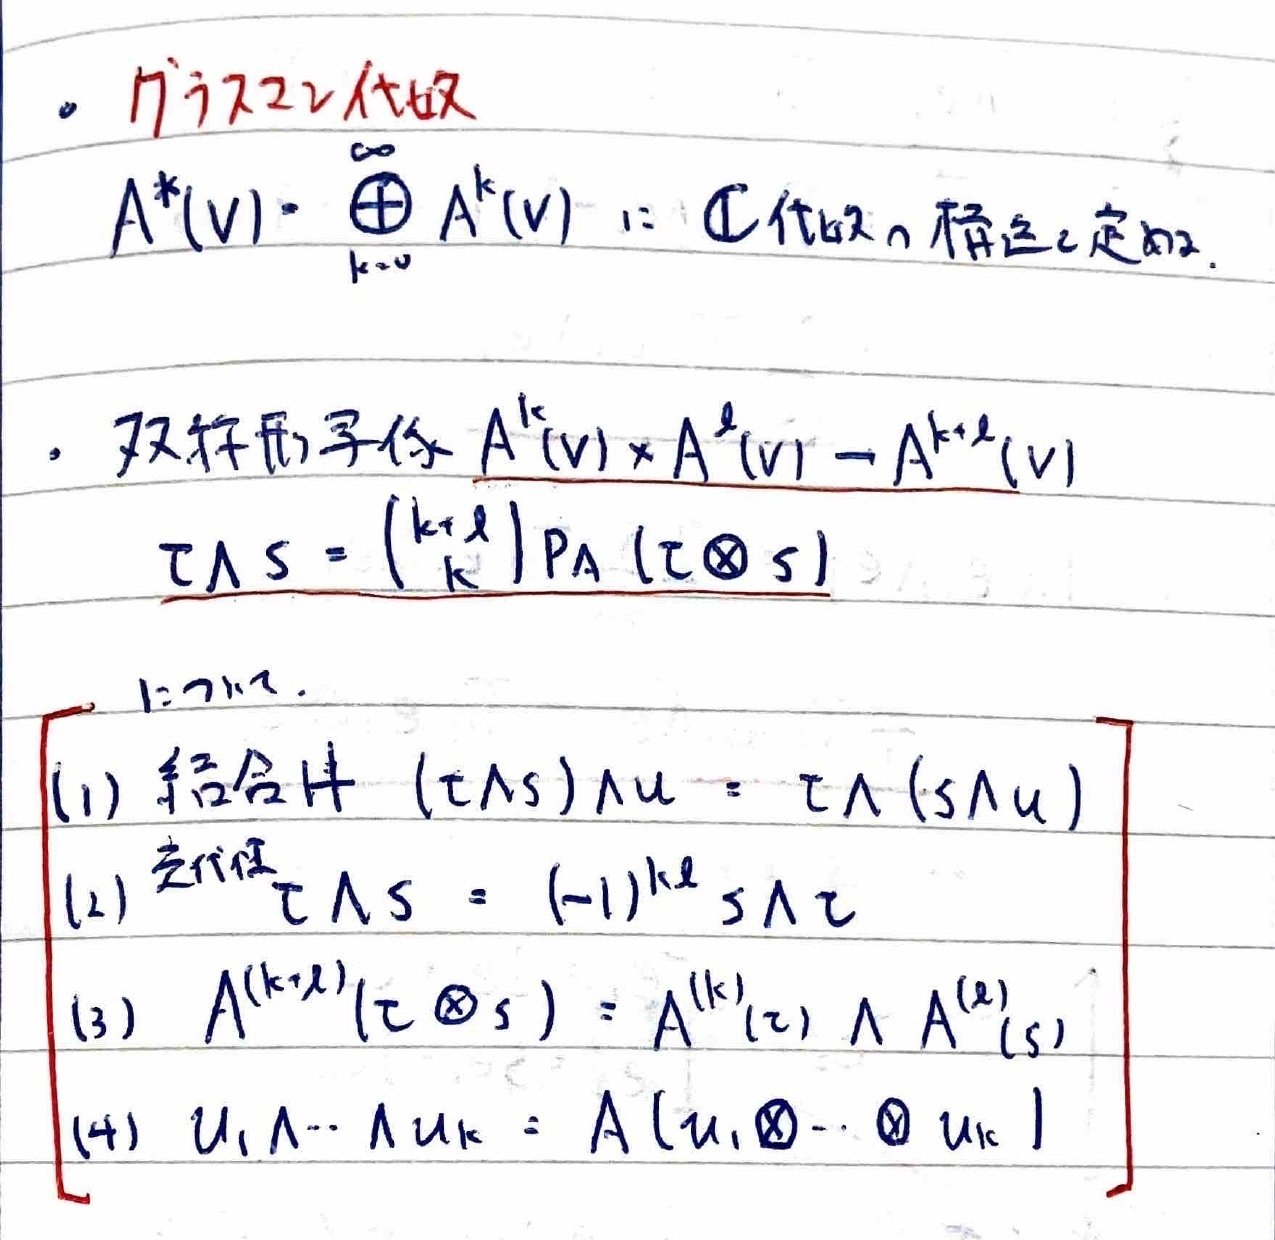 ・グラスマン代数
A*(V) = ⊕_{k=0}^{∞} A^k(V) に ℂ代数の構造を定める.
・双線形写像 A^k(V) × A^l(V) → A^{k+l}(V)
τ∧s = \binom{k+l}{k} P_A (τ⊗s)
について.
(1) 結合律 (τ∧s)∧u = τ∧(s∧u)
(2) 交代性 τ∧s = (-1)^{kl} s∧τ
(3) A^{(k+l)}(τ⊗s) = A^{(k)}(τ) ∧ A^{(l)}(s)
(4) u_1∧…∧u_k = A(u_1⊗…⊗u_k)